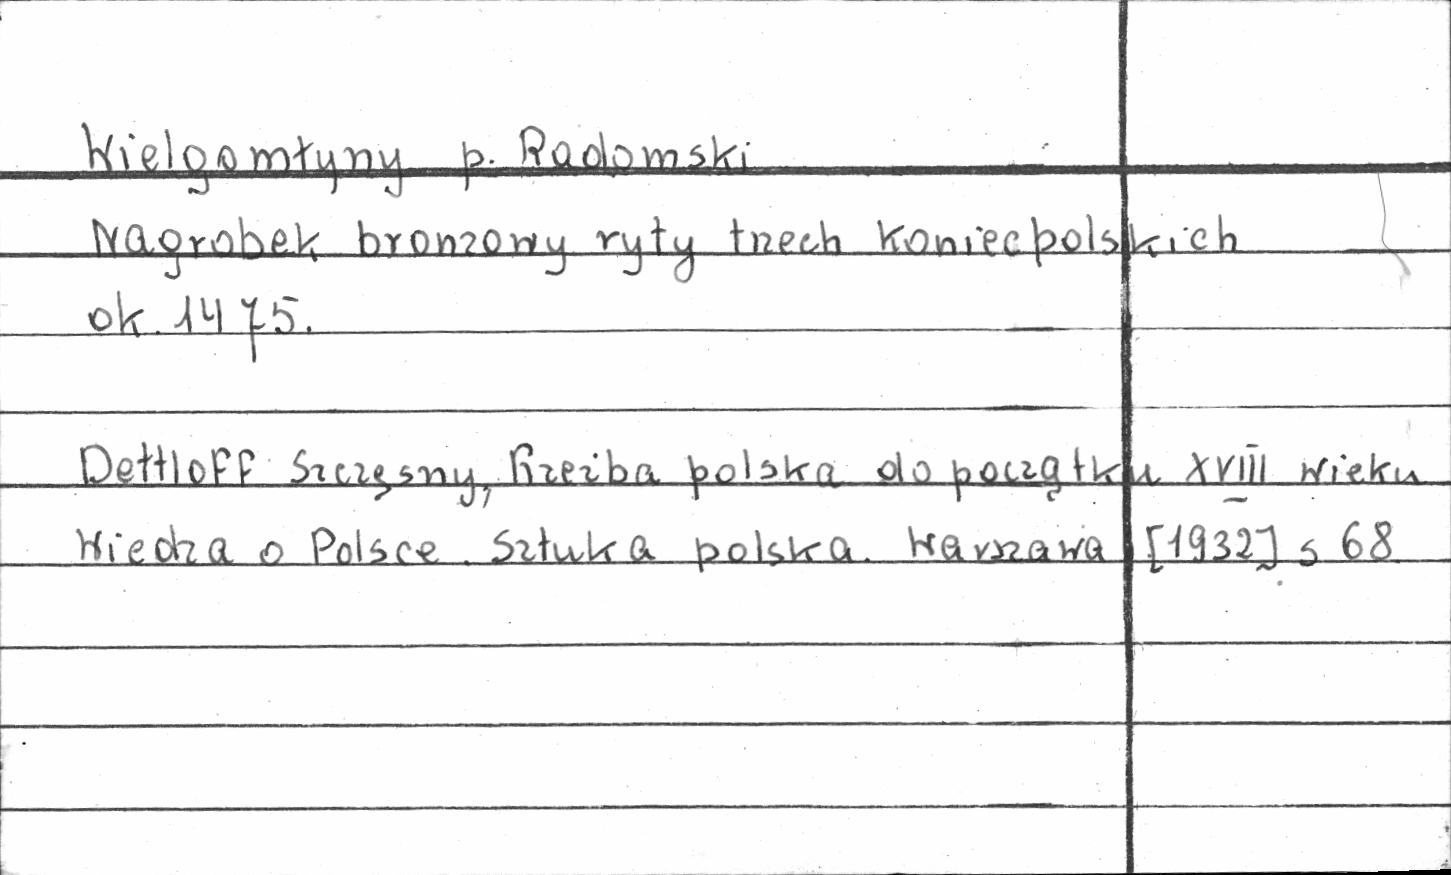 Wielgomłyny p. Radomski
Nagrobek bronzowy ryty trzech Koniecpolskich
ok. 1475.
Dettloff Szczęsny, Rzeźba polska do początku XVIII wieku
Wiedza o Polsce. Sztuka polska. Warszawa [1932] s 68